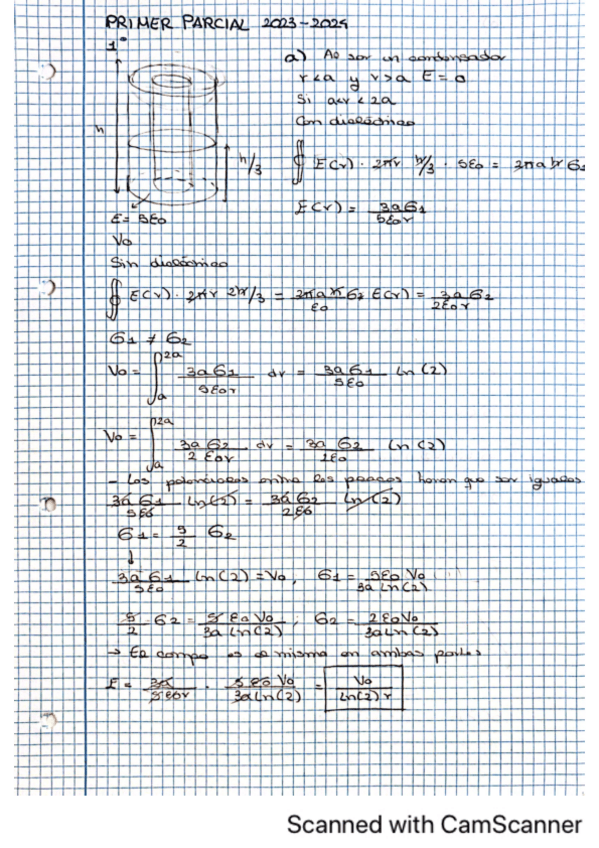 PRIMER PARCIAL 2023-2024
1º
a) Al ser un condensador
r<a y r>a E=0
Si a<r<2a
Con dieléctrico
h
h/3
∮ E(r) · 2πr h/3 · 5ε0 = 2πa h σ1
E(r) = 3aσ1 / 5ε0r
ε = 5ε0
V0
Sin dieléctrico
∮ E(r) · 2πr 2h/3 = 2πah/ε0 σ2 E(r) = 3aσ2 / 2ε0r
σ1 ≠ σ2
V0 = ∫a^2a 3aσ1 / 5ε0r dr = 3aσ1 / 5ε0 ln(2)
V0 = ∫a^2a 3aσ2 / 2ε0r dr = 3aσ2 / 2ε0 ln(2)
- Los potenciales entre las placas tienen que ser iguales
3aσ1 / 5ε0 ln(2) = 3aσ2 / 2ε0 ln(2)
σ1 = 5/2 σ2
↓
3aσ1 / 5ε0 ln(2) = V0, σ1 = 5ε0V0 / 3aln(2)
5/2 · σ2 = 5ε0V0 / 3aln(2), σ2 = 2ε0V0 / 3aln(2)
→ El campo es el mismo en ambas partes
E = 3a / 5ε0r · 5ε0V0 / 3aln(2) = V0 / ln(2)r
Scanned with CamScanner